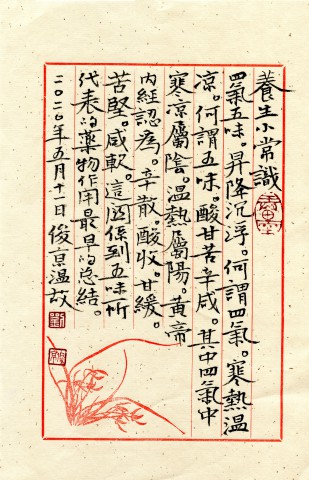 養生小常識
四氣五味。昇降沉浮。何謂四氣。寒熱溫
涼。何謂五味。酸甘苦辛咸。其中四氣中
寒凉屬陰。溫熱屬陽。黃帝
内經認爲。辛散。酸收。甘緩。
苦堅。咸軟。這関係到五味所
代表的藥物作用最早的总结。
二〇二〇年五月十一日俊京温故